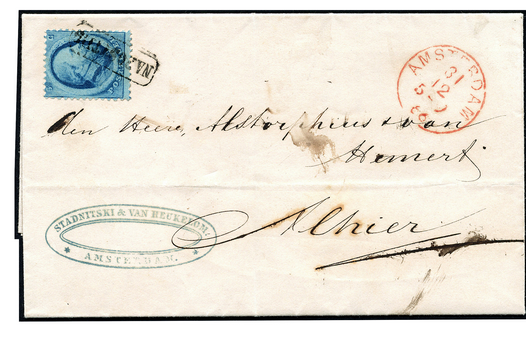 AMSTERDAM
31
12
den Heere, Alstorphius & van
Hemert
Alhier
STADNITSKI & VAN HEUKELOM:
* AMSTERDAM. *